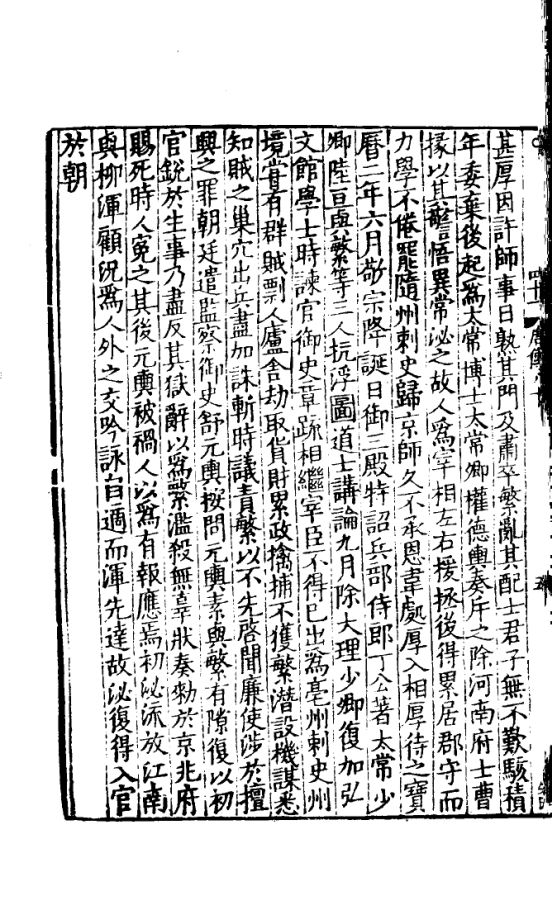 甚厚因許師事日熟其門及肅卒繁亂其配士君子無不歎駭積
年委棄後起爲太常博士太常卿權德輿奏斥之除河南府士曹
掾以其警悟異常泌之故人爲宰相左右援拯後得累居郡守而
力學不倦罷隨州刺史歸京師久不承恩韋處厚入相厚待之寶
曆二年六月敬宗降誕日御三殿特詔兵部侍郎丁公著太常少
卿陸亘與繁等三人抗浮圖道士講論九月除大理少卿復加弘
文館學士時諫官御史章疏相繼宰臣不得已出爲亳州刺史州
境嘗有群賊剽人廬舍劫取貨財累政擒捕不獲繁潛設機謀悉
知賊之巢穴出兵盡加誅斬時議責繁以不先啓聞廉使涉於擅
興之罪朝廷遣監察御史舒元輿按問元輿素與繁有隙復以初
官銳於生事乃盡反其獄辭以爲繁濫殺無辜狀奏勑於京兆府
賜死時人冤之其後元輿被禍人以爲有報應焉初泌流放江南
與柳渾顧況爲人外之交吟詠自適而渾先達故泌復得入官
於朝